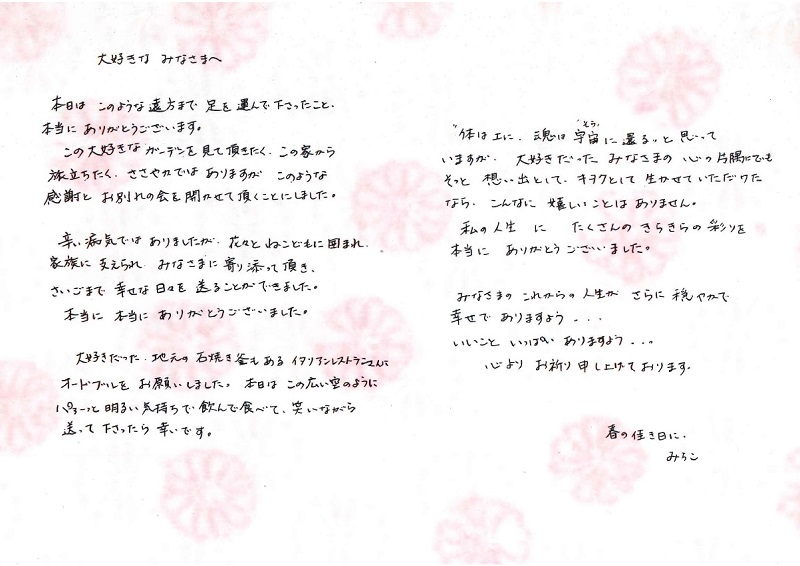 大好きな みなさまへ
本日は このような 遠方まで 足を 運んで下さったこと、
本当に ありがとうございます。
この大好きな ガーデンを 見て頂きたく、この家から
旅立ちたく、ささやかではありますが このような
感謝と お別れの会を開かせて頂くことにしました。
辛い病気では ありましたが、花々と ねこどもに囲まれ、
家族に 支えられ、みなさまに 寄り添って頂き、
さいごまで 幸せな日々を 送ることができました。
本当に 本当に ありがとうございました。
大好きだった、地元の 石焼き釜もある イタリアンレストランさんに
オードブルを お願いしました。本日は この広い空のように
パァーっと 明るい気持ちで 飲んで食べて、笑いながら
送って 下さったら 幸いです。
"体は土に、魂は宇宙(そら)に還る"と 思って
いますが、大好きだった みなさまの 心の片隅にでも
そっと 想い出として、キオクとして 生かせていただけた
なら、こんなに 嬉しいことは ありません。
私の人生 に たくさんの きらきらの 彩りを
本当に ありがとうございました。
みなさまの これからの人生が さらに 穏やかで
幸せで ありますよう・・・
いいこと いっぱい ありますよう・・・
心より お祈り申し上げております。
春の佳き日に、
みちこ